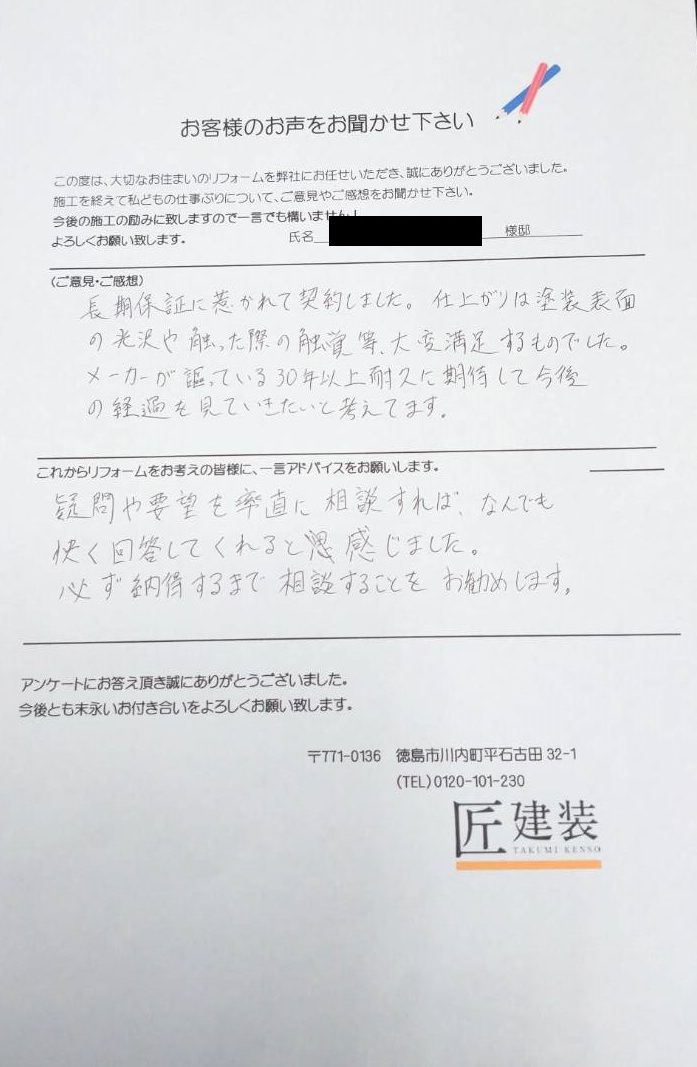 お客様のお声をお聞かせ下さい
この度は、大切なお住まいのリフォームを弊社にお任せいただき、誠にありがとうございました。
施工を終えて私どもの仕事ぶりについて、ご意見やご感想をお聞かせ下さい。
今後の施工の励みに致しますので一言でも構いません！
よろしくお願い致します。 氏名 様邸
(ご意見・ご感想)
長期保証に惹かれて契約しました。仕上がりは塗装表面
の光沢や触った際の触覚等、大変満足するものでした。
メーカーが謳っている30年以上耐久に期待して今後
の経過を見ていきたいと考えてます。
これからリフォームをお考えの皆様に、一言アドバイスをお願いします。
疑問や要望を率直に相談すれば、なんでも
快く回答してくれると感じました。
必ず納得するまで相談することをお勧めします。
アンケートにお答え頂き誠にありがとうございました。
今後とも末永いお付き合いをよろしくお願い致します。
〒771-0136 徳島市川内町平石古田 32-1
(TEL)0120-101-230
匠建装
TAKUMI KENSO